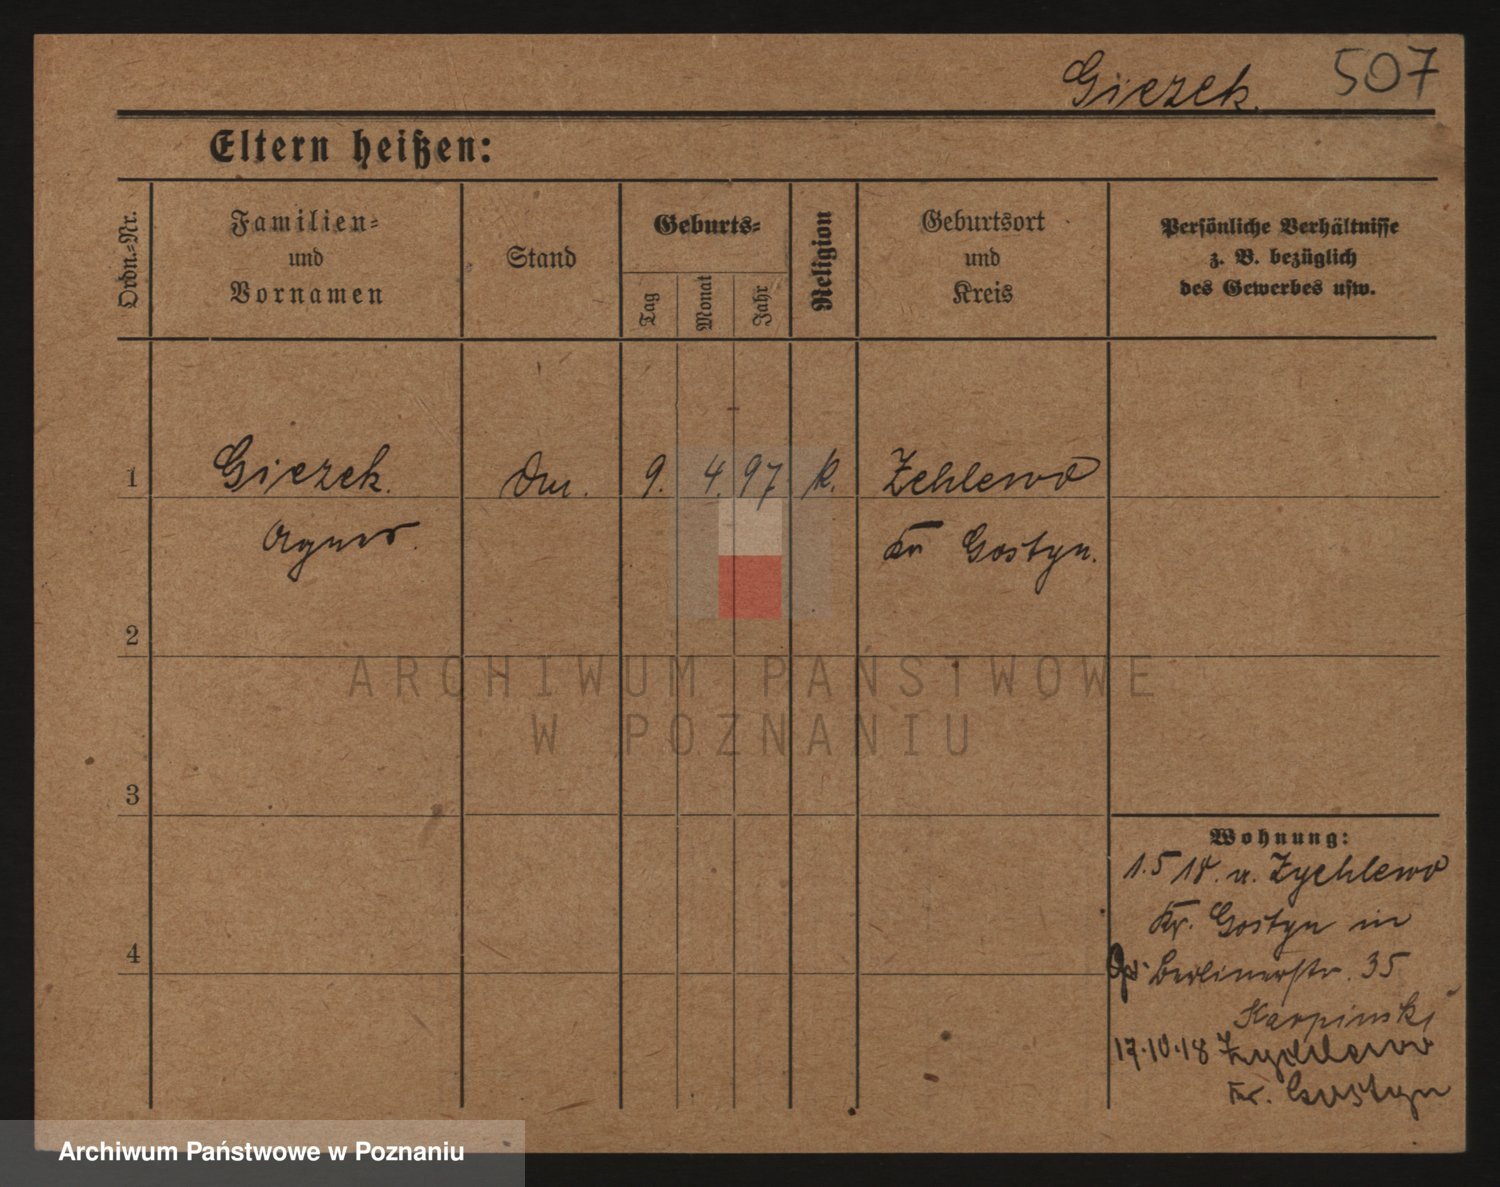 Giezek.
507
Eltern heißen:
Ordn.-Nr.
Familien-
und
Vornamen
Stand
Geburts-
Tag
Monat
Jahr
Religion
Geburtsort
und
Kreis
Persönliche Verhältnisse
z. B. bezüglich
des Gewerbes usw.
1
Giezek.
9. 4. 97
k.
Zehlewo
Agnes.
Kr Gostyn.
2
ARCHIWUM PAŃSTWOWE
W POZNANIU
3
Wohnung:
1.5 18. v. Zychlewo
Kr. Gostyn in
Berlinerstr. 35
4
Karpinski
17.10.18 Zychlewo
Kr. Gostyn
Archiwum Państwowe w Poznaniu